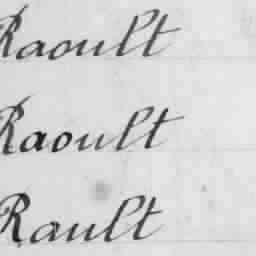 Raoult
Raoult
Rault